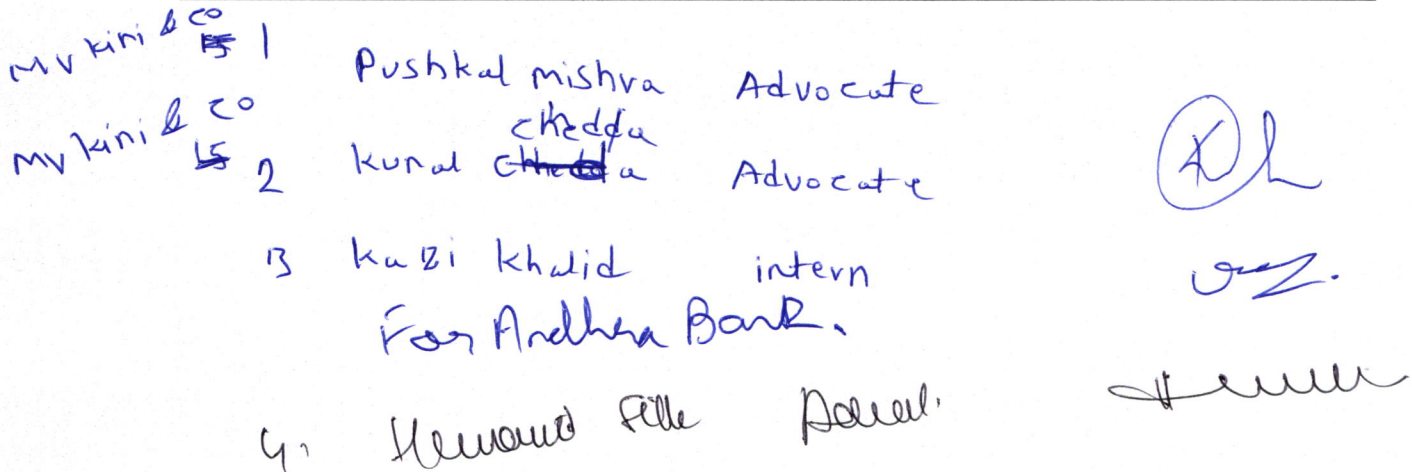 MV Kini & Co 1 Pushkal Mishra Advocate
MV Kini & Co 2 Kunal Chedda Advocate
3 Kazi Khalid intern
For Andhra Bank.
4. Hemant